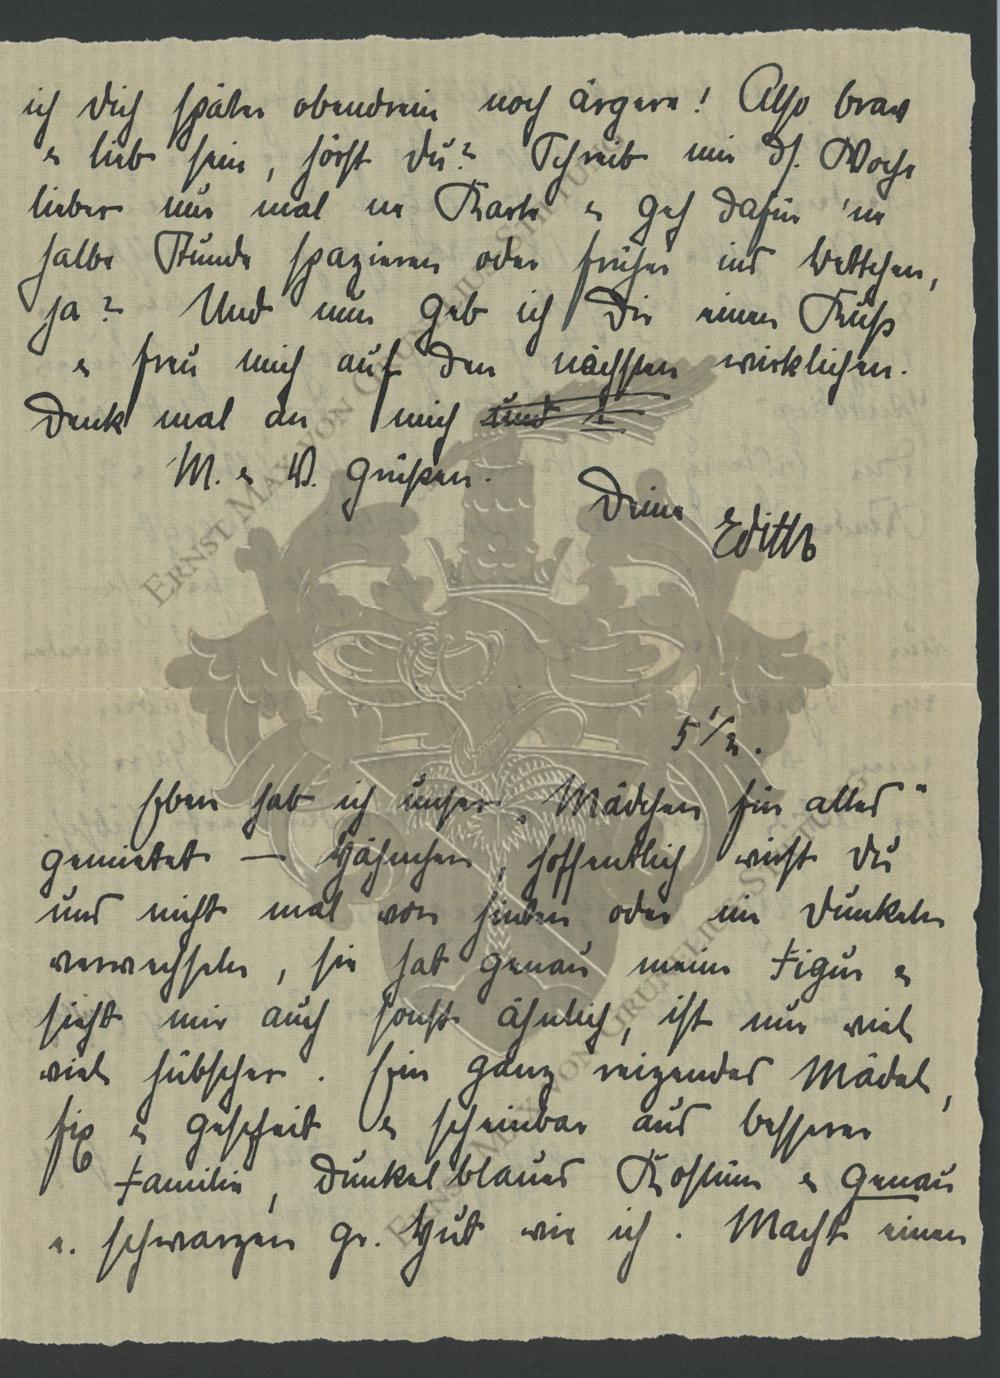 ich Dich später obendrein noch ärgere! Also brav
& lieb sein, hörst Du? Schreib mir ds. Woche
lieber nur mal ne Karte & geh dafür 'ne
halbe Stunde spazieren oder früher ins Bettchen,
ja? Und nun geb ich Dir einen Kuß
& freu mich auf den nächsten wirklichen.
Denk mal an mich und 1
M. & V. grüßen.
Deine Edith
5 1/2.
Eben hab ich unser „Mädchen für alles"
gemietet — Hähnchen, hoffentlich wirst Du
uns nicht mal von hinten oder im Dunkeln
verwechseln, sie hat genau meine Figur &
sieht mir auch sonst ähnlich, ist nur viel
viel hübscher. Ein ganz reizendes Mädel,
fix & gescheit & scheinbar aus besserer
Familie, dunkelblaues Kostüm & genau
e. schwarzen gr. Hut wie ich. Macht einen
ERNST MAX VON GRUNELIUS-STIFTUNG
ERNST MAX VON GRUNELIUS-STIFTUNG